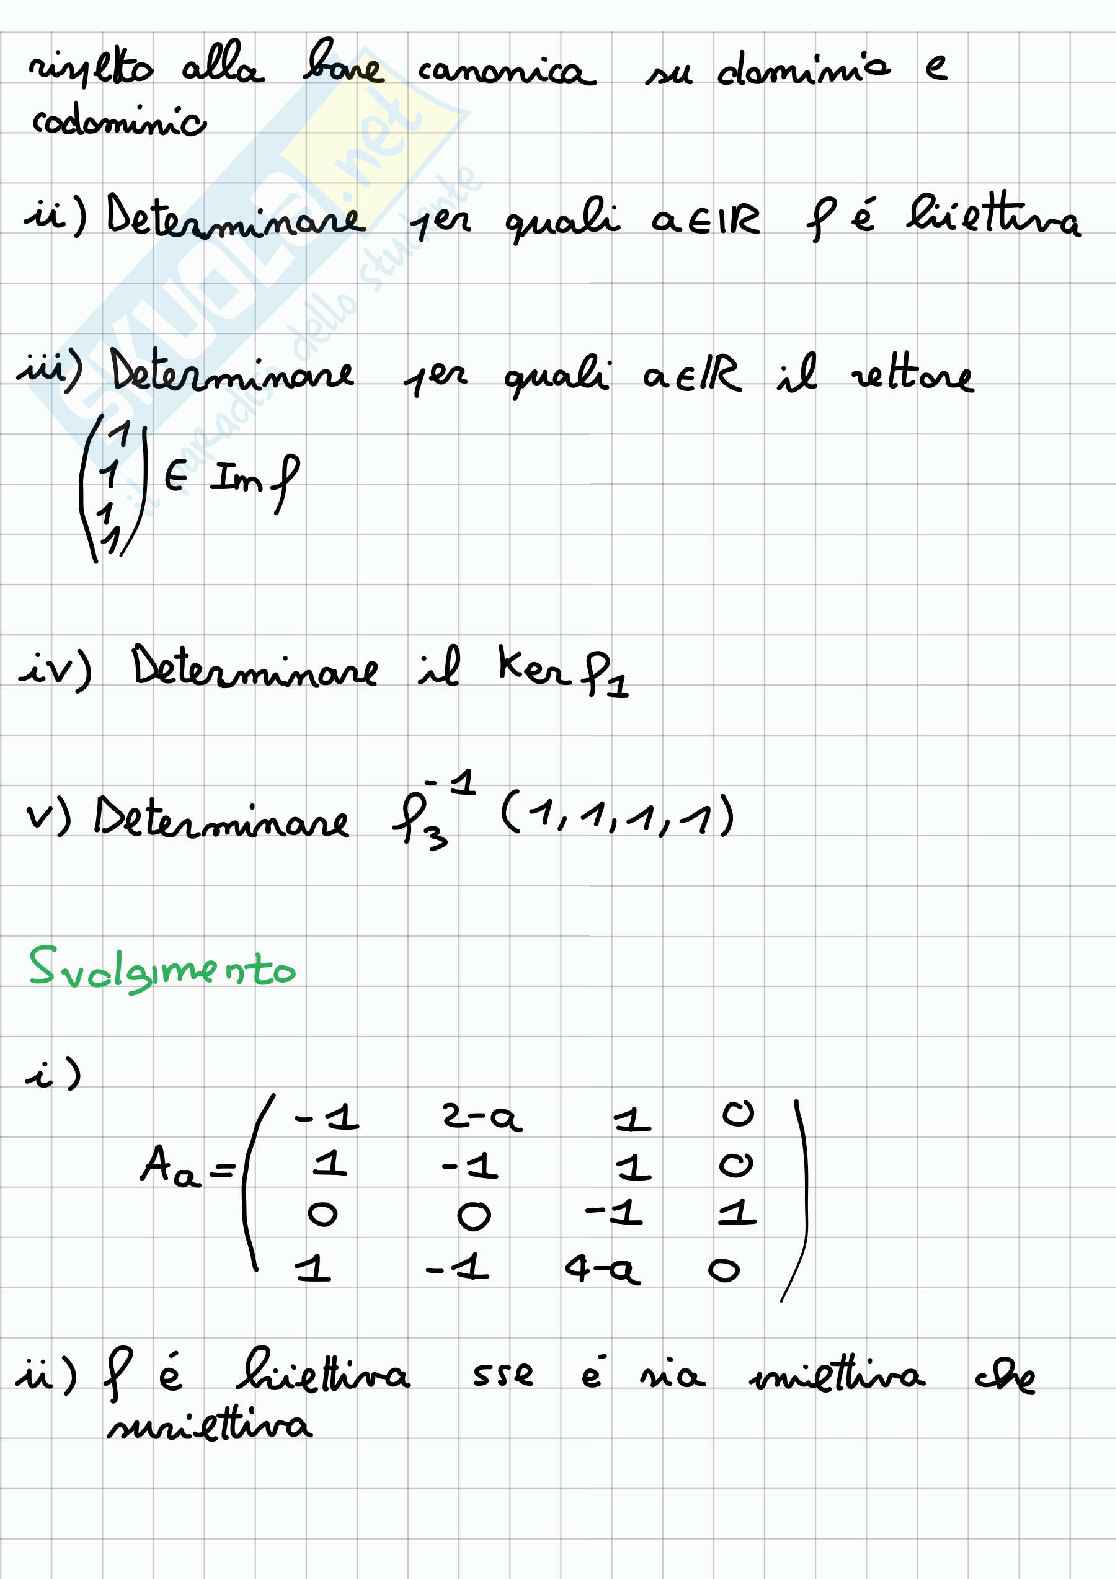 rispetto alla base canonica su dominio e
codominio
ii) Determinare per quali a∈ℝ f é biiettiva
iii) Determinare per quali a∈ℝ il vettore
(1
1
1
1) ∈ Im f
iv) Determinare il Ker f₁
v) Determinare f₃⁻¹ (1,1,1,1)
Svolgimento
i)
Aₐ = (-1 2-a 1 0
1 -1 1 0
0 0 -1 1
1 -1 4-a 0)
ii) f é biiettiva sse é sia iniettiva che
suriettiva
SKUOLA.net
il paradiso dello studente